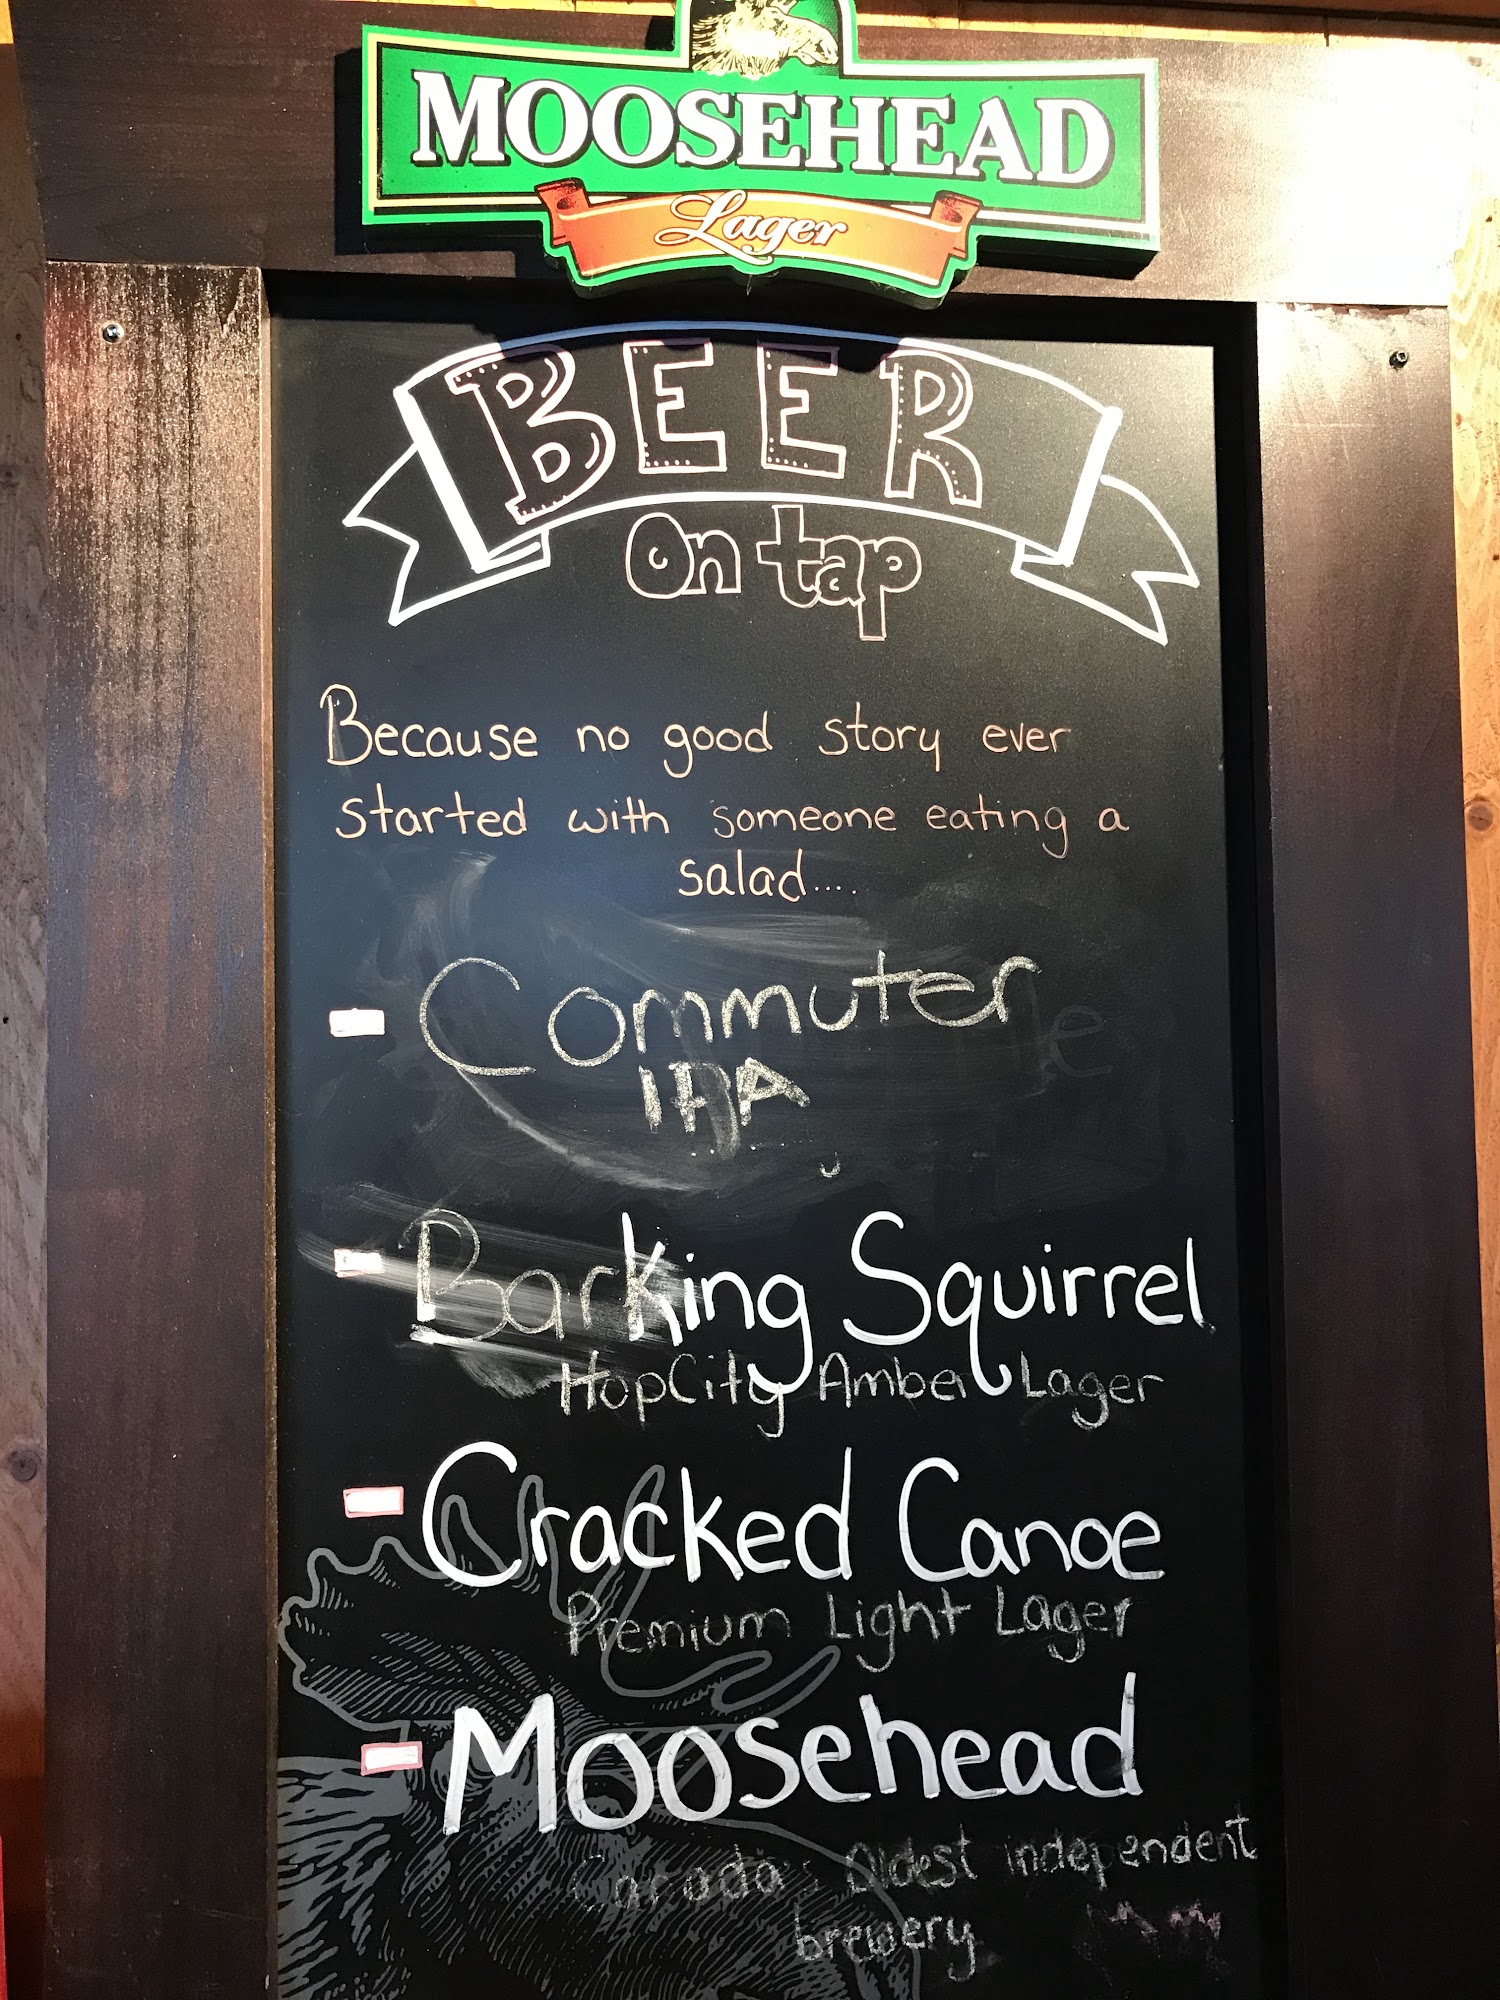 MOOSEHEAD
Lager
BEER
on tap
Because no good story ever
started with someone eating a
salad....
Commuter
IPA
Barking Squirrel
HopCity Amber Lager
Cracked Canoe
Premium Light Lager
Moosehead
Canada's Oldest independent
brewery